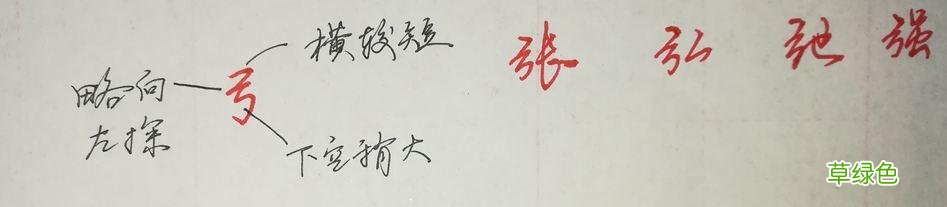 横较短
张 弘 弛 强
略向
左探
弓
下空稍大
草绿色